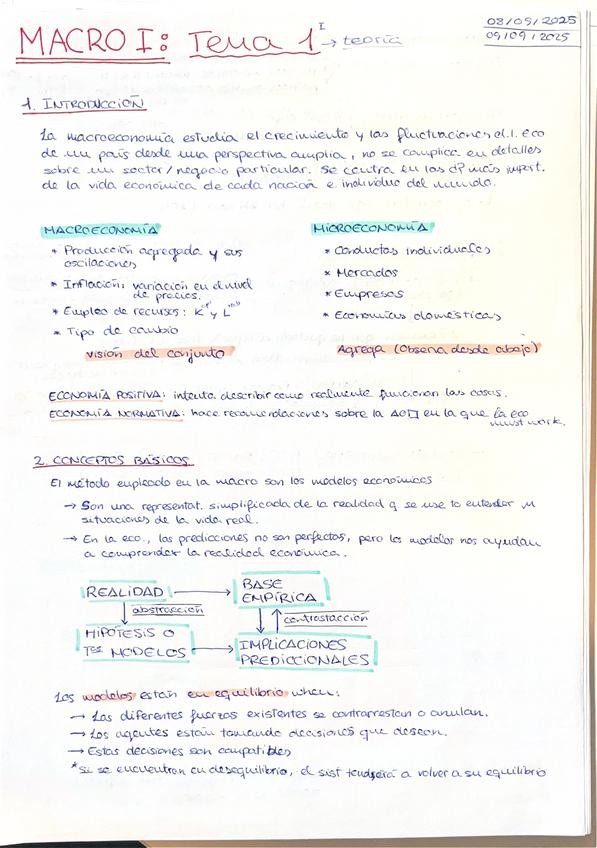 08/09/2025
09/09/2025
MACRO I: Tema 1 I → teoría
1. INTRODUCCIÓN
La macroeconomía estudia el crecimiento y las fluctuaciones d.l. eco
de un país desde una perspectiva amplia, no se complica en detalles
sobre un sector/negocio particular. Se centra en las más import.
de la vida económica de cada nación e individuo del mundo.
MACROECONOMÍA
* Producción agregada y sus
oscilaciones
* Inflación: variación en el nivel
de precios.
* Empleo de recursos: K y L
* Tipo de cambio
visión del conjunto
MICROECONOMÍA
* Conductas individuales
* Mercados
* Empresas
* Economías domésticas
Agrega (Observa desde abajo)
ECONOMÍA POSITIVA: intenta describir como realmente funcionan las cosas.
ECONOMÍA NORMATIVA: hace recomendaciones sobre la en la que la eco
must work.
2. CONCEPTOS BÁSICOS
El método empleado en la macro son los modelos económicos
→ Son una representat. simplificada de la realidad q se use to entender
situaciones de la vida real.
→ En la eco., las predicciones no son perfectas, pero los modelos nos ayudan
a comprender la realidad económica.
REALIDAD → BASE
EMPÍRICA
abstracción
contrastación
HIPÓTESIS O
MODELOS → IMPLICACIONES
PREDICCIONALES
Los modelos están en equilibrio when:
→ Las diferentes fuerzas existentes se contrarrestan o anulan.
→ Los agentes están tomando decisiones que desean.
→ Estas decisiones son compatibles
* Si se encuentran en desequilibrio, el sist tenderá a volver a su equilibrio